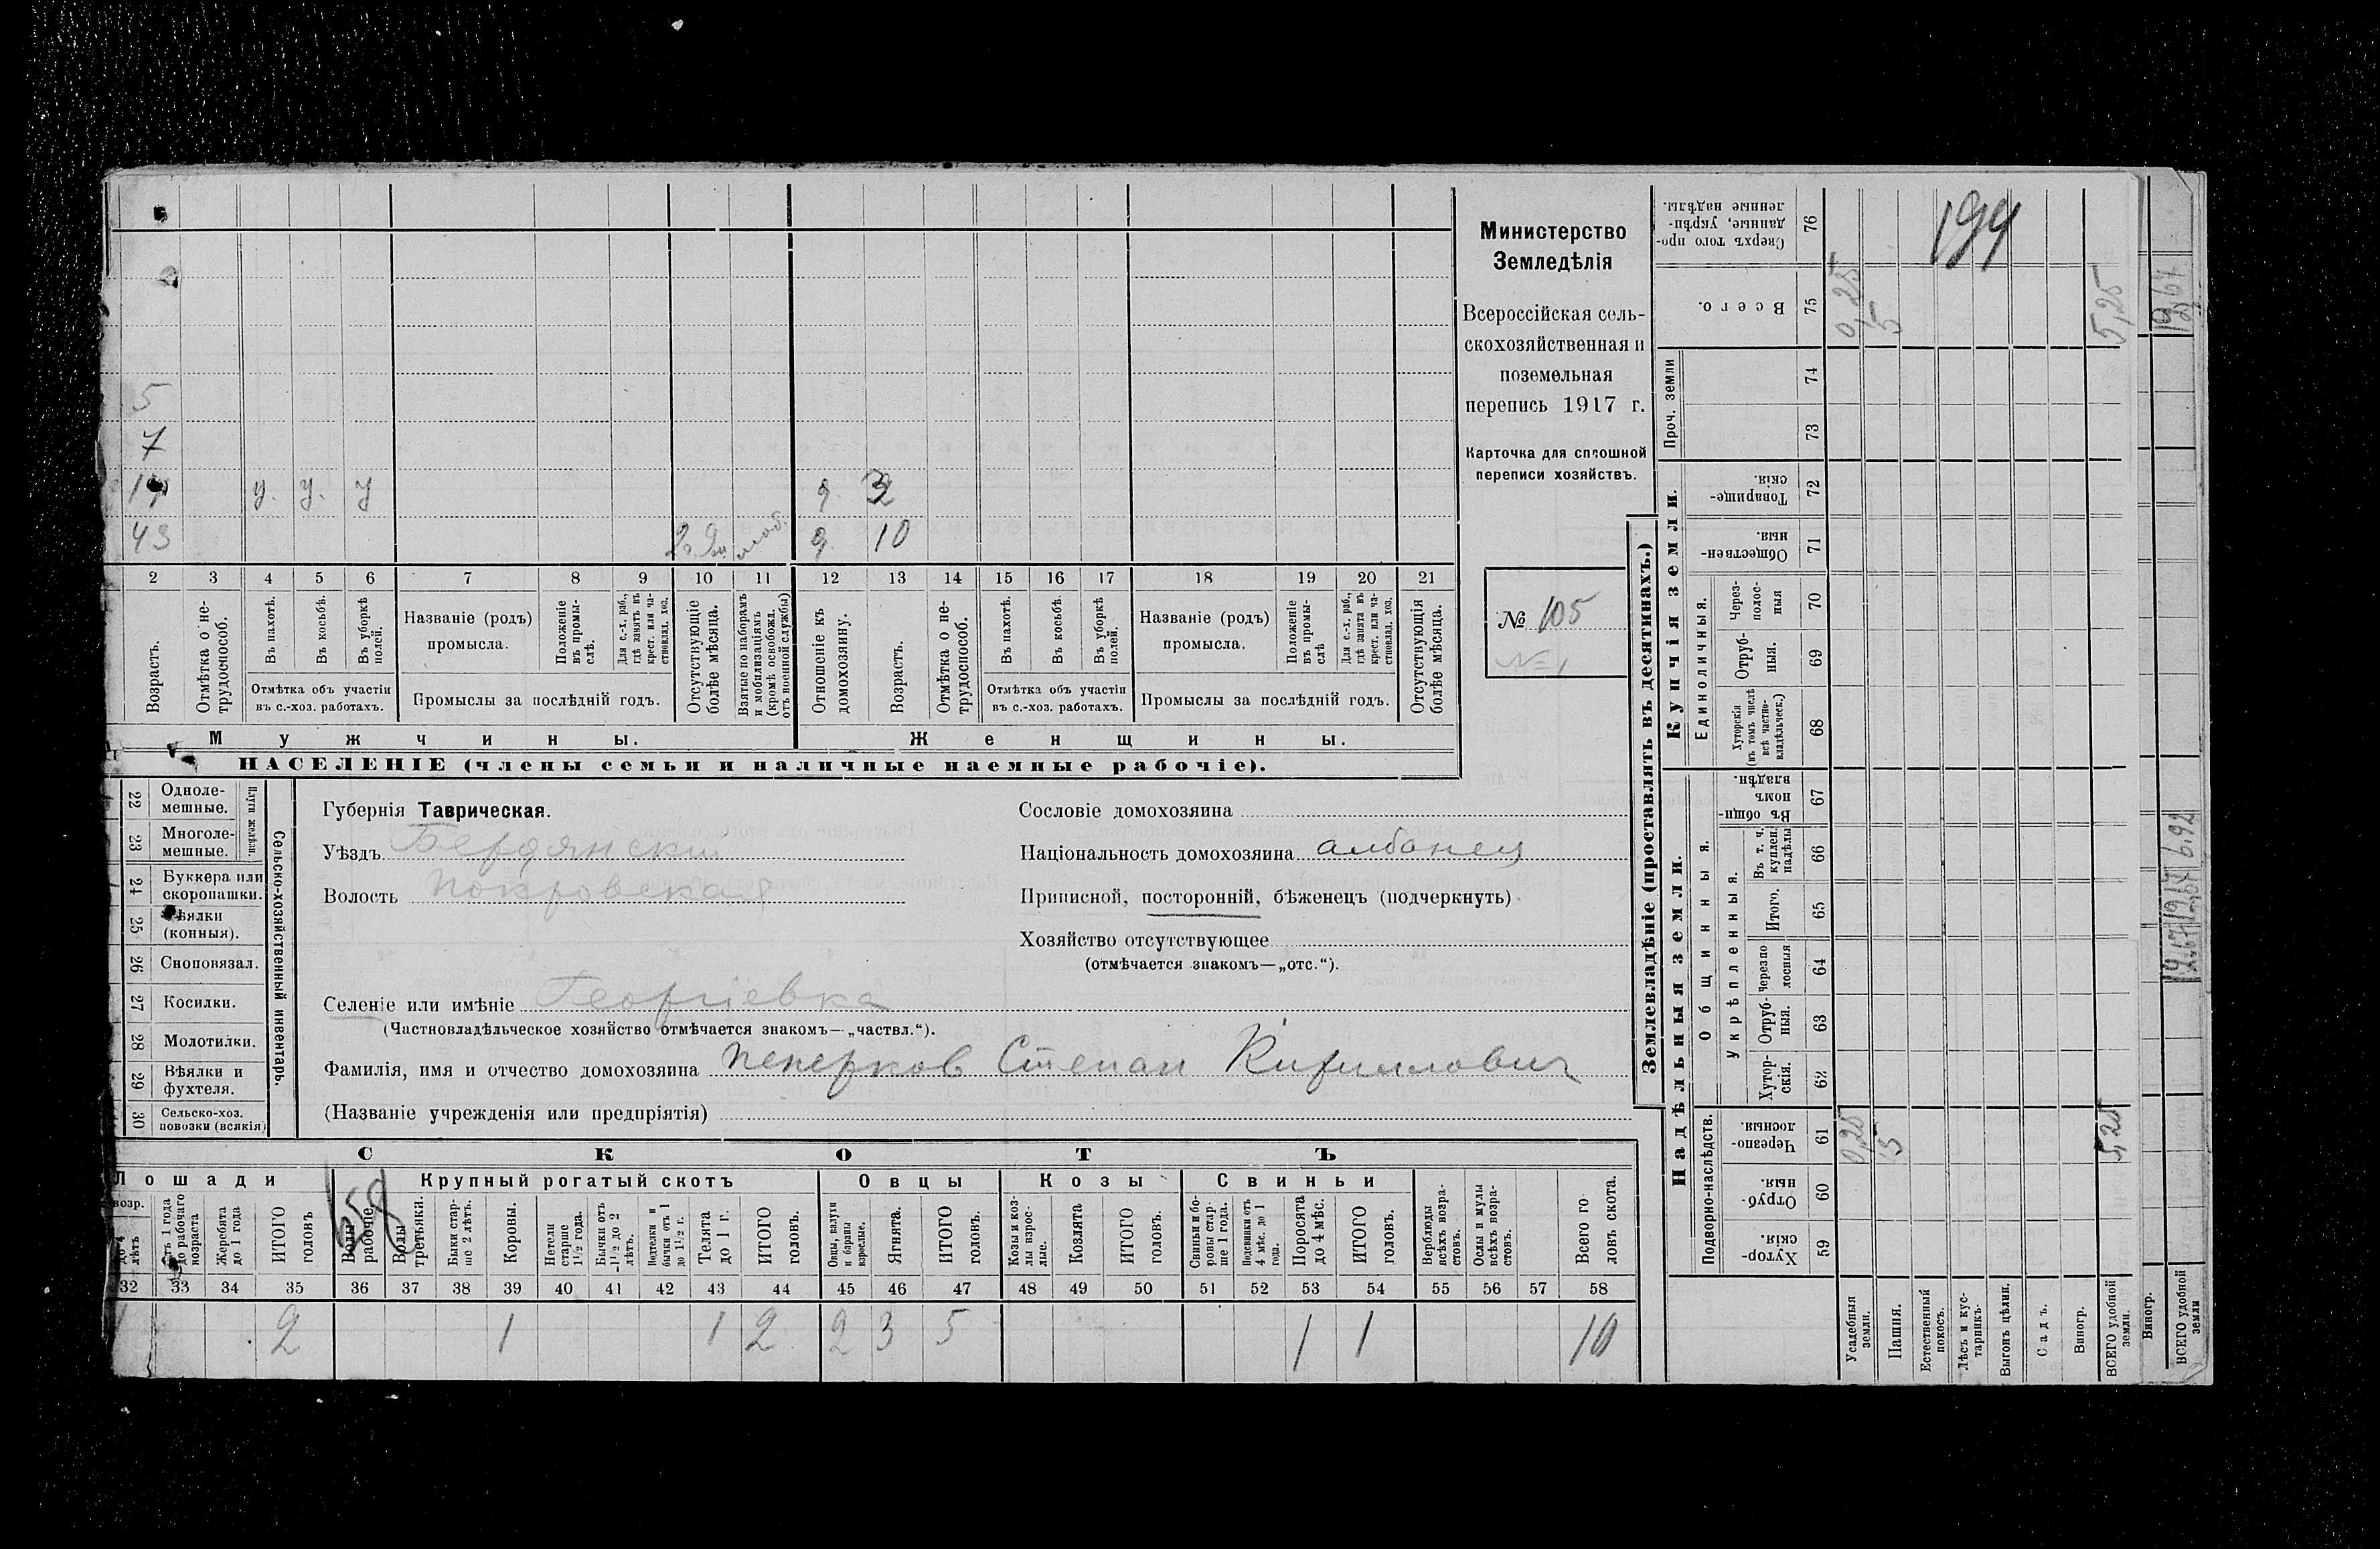 Министерство
Земледѣлія
Всероссійская сель-
скохозяйственная и
поземельная
перепись 1917 г.
Карточка для сплошной
переписи хозяйствъ.
№ 105
№ 1
5
7
у. у. у
д 3
43 моб. д. 10
2 3 4 5 6 7 8 9 10 11 12 13 14 15 16 17 18 19 20 21
Возрастъ.
Отмѣтка о не-
трудоспособ.
Въ пахотѣ.
Въ косьбѣ.
Въ уборкѣ
полей.
Отмѣтка объ участіи
въ с.-хоз. работахъ.
Названіе (родъ)
промысла.
Положеніе
въ промы-
слѣ.
Для с.-х. раб.,
гдѣ занятъ въ
крест. или ча-
стновлад. хоз.
Промыслы за послѣдній годъ.
Отсутствующіе
болѣе мѣсяца.
Взятые по наборамъ
и мобилизаціямъ
(кромѣ освобожд.
отъ военной службы)
Отношеніе къ
домохозяину.
Возрастъ.
Отмѣтка о не-
трудоспособ.
Въ пахотѣ.
Въ косьбѣ.
Въ уборкѣ
полей.
Отмѣтка объ участіи
въ с.-хоз. работахъ.
Названіе (родъ)
промысла.
Положеніе
въ промы-
слѣ
Для с.-х. раб.,
гдѣ занята въ
крест. или ча-
стновлад. хоз.
Промыслы за послѣдній годъ.
Отсутствующія
болѣе мѣсяца.
Мужчины.
Женщины.
НАСЕЛЕНІЕ (члены семьи и наличные наемные рабочіе).
22 Одноле-
мешные.
23 Многоле-
мешные.
Плуги желѣзн.
24 Буккера или
скоропашки.
25 Сѣялки
(конныя).
26 Сноповязал.
27 Косилки.
28 Молотилки.
29 Вѣялки и
фухтеля.
30 Сельско-хоз.
повозки (всякія)
Сельско-хозяйственный инвентарь.
Губернія Таврическая.
Уѣздъ Бердянскій
Волость Покровская
Сословіе домохозяина
Національность домохозяина албанец
Приписной, посторонній, бѣженецъ (подчеркнуть)
Хозяйство отсутствующее
(отмѣчается знакомъ—„отс.“).
Селеніе или имѣніе Георгіевка
(Частновладѣльческое хозяйство отмѣчается знакомъ—„частвл.“).
Фамилія, имя и отчество домохозяина Пенерков Степан Кириллович
(Названіе учрежденія или предпріятія)
СКОТЪ
Лошади
Крупный рогатый скотъ
Овцы
Козы
Свиньи
возр.
до 4
лѣтъ
Отъ 1 года
до рабочаго
возраста
Жеребята
до 1 года
ИТОГО
головъ
Волы
рабочіе
Волы
третьяки.
Быки стар-
ше 2 лѣтъ.
Коровы.
Нетели
старше
1½ года.
Бычки отъ
1½ до 2
лѣтъ.
Подтелки и
бычки отъ 1
до 1½ г.
Телята
до 1 г.
ИТОГО
головъ.
Овцы, валухи
и бараны
взрослые.
Ягнята.
ИТОГО
головъ.
Козы и коз-
лы взрос-
лые.
Козлята
ИТОГО
головъ.
Свиньи и бо-
ровы стар-
ше 1 года.
Подсвинки отъ
4 мѣс. до 1
года.
Поросята
до 4 мѣс.
ИТОГО
головъ.
Верблюды
всѣхъ возра-
стовъ.
Ослы и мулы
всѣхъ возра-
стовъ.
Всего го-
ловъ скота.
32 33 34 35 36 37 38 39 40 41 42 43 44 45 46 47 48 49 50 51 52 53 54 55 56 57 58
1 2 1 1 2 2 3 5 1 1 10
Землевладѣніе (проставлять въ десятинахъ.)
Купчія земли.
Надѣльныя земли.
Сверхъ того про-
данные, укрѣп-
ленные надѣлы.
76
Всего.
75
0,25
5
5,25
Проч. земли
74
73
Товарище-
скія.
72
Обществен-
ныя.
71
Единоличныя.
Через-
полос-
ныя
70
Отруб-
ныя.
69
Хуторскія
(въ томъ числѣ
всѣ частно-
владѣльческ.)
68
Общинныя.
Въ общин-
номъ
владѣн.
67
Укрѣпленныя.
Въ т. ч.
куплен.
надѣлы
66
Итого.
65
Черезпо
лосныя
64
Отруб-
ныя.
63
Хутор-
скія.
62
Подворно-наслѣдств.
Черезпо-
лосныя.
61
0,25
5
5,25
Отруб-
ныя.
60
Хутор-
скія.
59
Усадебныя
земли.
Пашня.
Естественный
покосъ.
Лѣсъ и кус-
тарникъ.
Выгонъ цѣлин.
Садъ.
Виногр.
ВСЕГО удобной
земли.
Виногр.
ВСЕГО удобной
земли
194
12,67 12,67 6,92